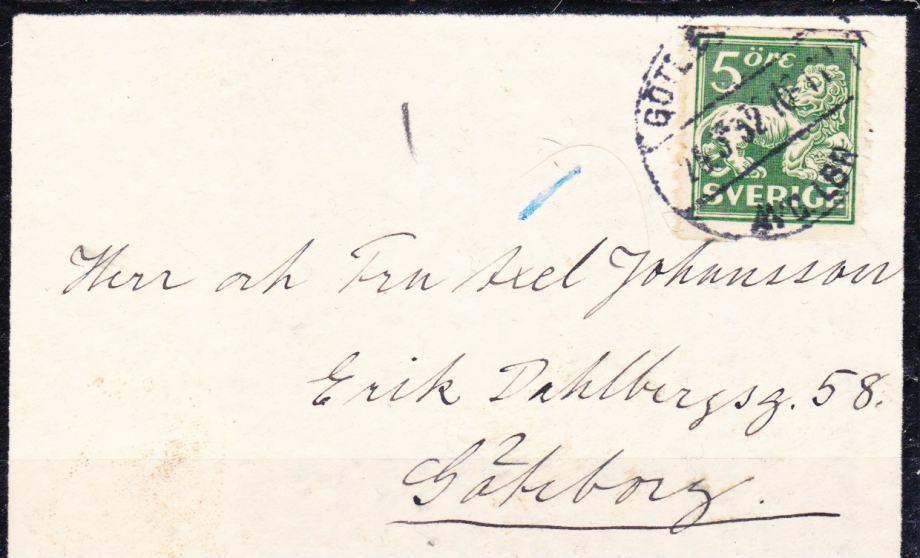 5 öre
SVERIGE
Herr och Fru Axel Johansson
Erik Dahlbergsg. 58.
Göteborg.